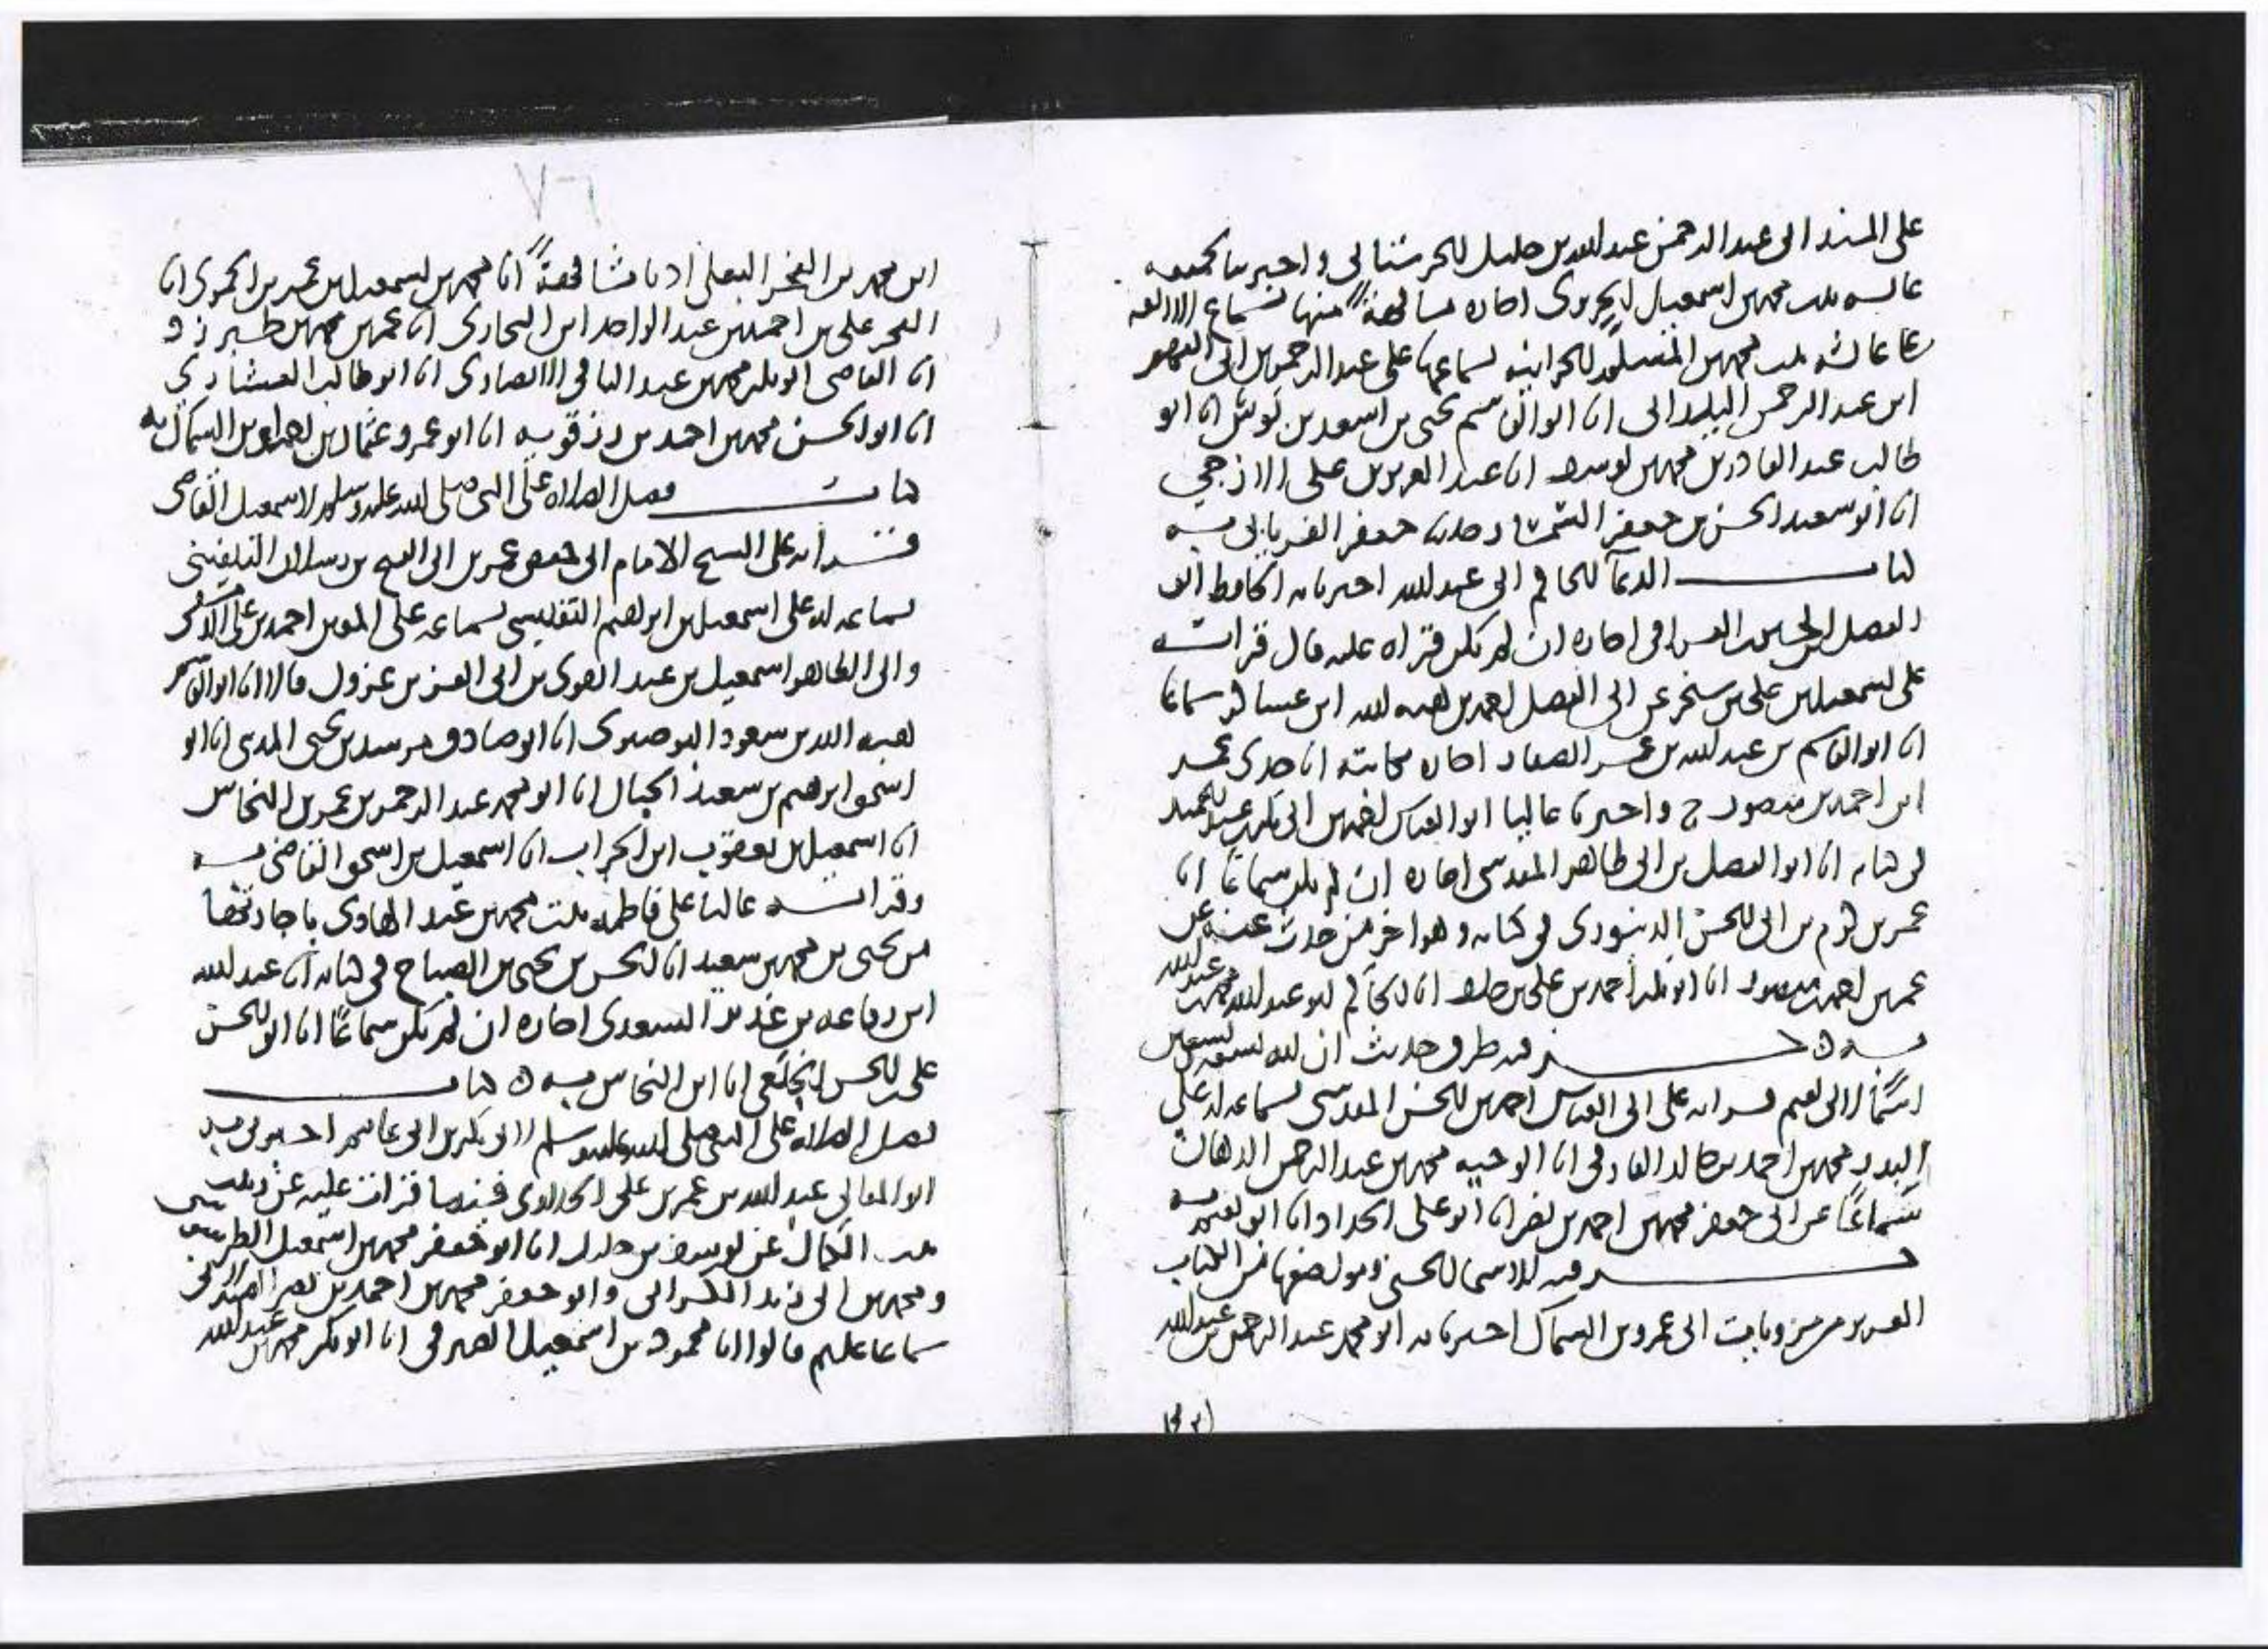 على المسند ابى عبد الرحمن عبد الله بن خليل الحرستانى واخبرنا بجميعه
محمد بن اسمعيل الجزرى اجازه مشافهة منها بسماع
عائشه بنت محمد بن المسلم الحرانيه بسماعها على عبد الرحمن بن ابى الفهم
ابن عبد الرحمن اليلدانى انا ابو القاسم يحيى بن اسعد بن بوش انا ابو
طالب عبد القادر بن محمد بن يوسف انا عبد العزيز بن على الازجي
انا ابو سعيد الحسن بن جعفر السمسار حدثنا جعفر الفريابى به
كتاب الدعآ للحاكم ابى عبد الله اخبرنا به الحافظ ابو
الفضل ابن الحسين العراقى اجازه ان لم يكن قراه عليه قال قراته
على اسمعيل بن على بن سنجر عن ابى الفضل احمد بن هبه الله ابن عساكر سماعا
انا ابو القاسم بن عبد الله بن عمر الصفار اجازه مكاتبة انا جدى عمر
ابن احمد بن منصور ح واخبرنا عاليا ابو العباس احمد بن ابى بكر بن عبد الحميد
فى كتابه انا ابو الفضل بن ابى طاهر المقدسى اجازه ان لم يكن سماعا انا
عمر بن كرم بن ابى الحسن الدينورى فى كتابه وهو اخر من حدث عنه عن
عمر بن احمد بن منصور انا ابو بكر احمد بن على بن خلف انا الحاكم ابو عبد الله محمد بن عبد الله
به جزء فيه طرق حديث ان لله تسعه وتسعين
اسمًا لابى نعيم قراته على ابى العباس احمد بن الحسن المقدسى بسماعه له على
البدر محمد بن احمد بن خالد الفارقى انا الوجيه محمد بن عبد الرحمن الدهان
سماعًا عن ابى جعفر محمد بن احمد بن نصر انا ابو على الحداد انا ابو نعيم به
جزء فيه الاسما الحسنى ومواضعها من الكتاب
العزيز من مرويات ابى عمرو بن السماك اخبرنا به ابو محمد عبد الرحمن بن عبد الله
ابن محمد بن الفخر البعلى اذنا مشافهة انا محمد بن اسمعيل بن عمر بن الحموى انا
الفخر على بن احمد بن عبد الواحد ابن البخارى انا عمر بن محمد بن طبرزد
انا القاضى ابو بكر محمد بن عبد الباقى الانصارى انا ابو طالب العشاري
انا ابو الحسن محمد بن احمد بن رزقويه انا ابو عمرو عثمان بن احمد بن السماك به
كتاب فضل الصلاه على النبى صلى الله عليه وسلم لاسمعيل القاضى
قراته على الشيخ الامام ابى حفص عمر بن ابى الفتح بن رسلان البلقينى
بسماعه له على اسمعيل بن ابراهيم التفليسى بسماعه على المعين احمد بن على الدمشقى
وابى الطاهر اسمعيل بن عبد القوى بن ابى العز بن عزون قالا انا ابو القاسم
هبه الله بن سعود البوصيرى انا ابو صادق مرشد بن يحيى المدينى انا ابو
اسحق ابراهيم بن سعيد الحبال انا ابو محمد عبد الرحمن بن عمر بن النحاس
انا اسمعيل بن يعقوب ابن الجراب انا اسمعيل بن اسحق القاضى به
وقراته عاليا على فاطمه بنت محمد بن عبد الهادى باجازتها
من يحيى بن محمد بن سعيد انا الحسن بن يحيى بن الصباح فى كتابه انا عبد الله
ابن رفاعه بن غدير السعدى اجازه ان لم يكن سماعًا انا ابو الحسن
على بن الحسن الخلعى انا ابن النحاس به كتاب
فضل الصلاه على النبى صلى الله عليه وسلم لابى بكر بن ابى عاصم اخبرنى به
ابو المعالى عبد الله بن عمر بن على الحلاوى فيما قرات عليه عن زينب
بنت الكمال عن يوسف بن خليل انا ابو جعفر محمد بن اسمعيل الطرسوسى
ومحمد بن ابى زيد الكرانى وابو جعفر محمد بن احمد بن نصر الصيدلانى
سماعا عليهم قالوا انا محمود بن اسمعيل الصيرفى انا ابو بكر محمد بن عبد الله